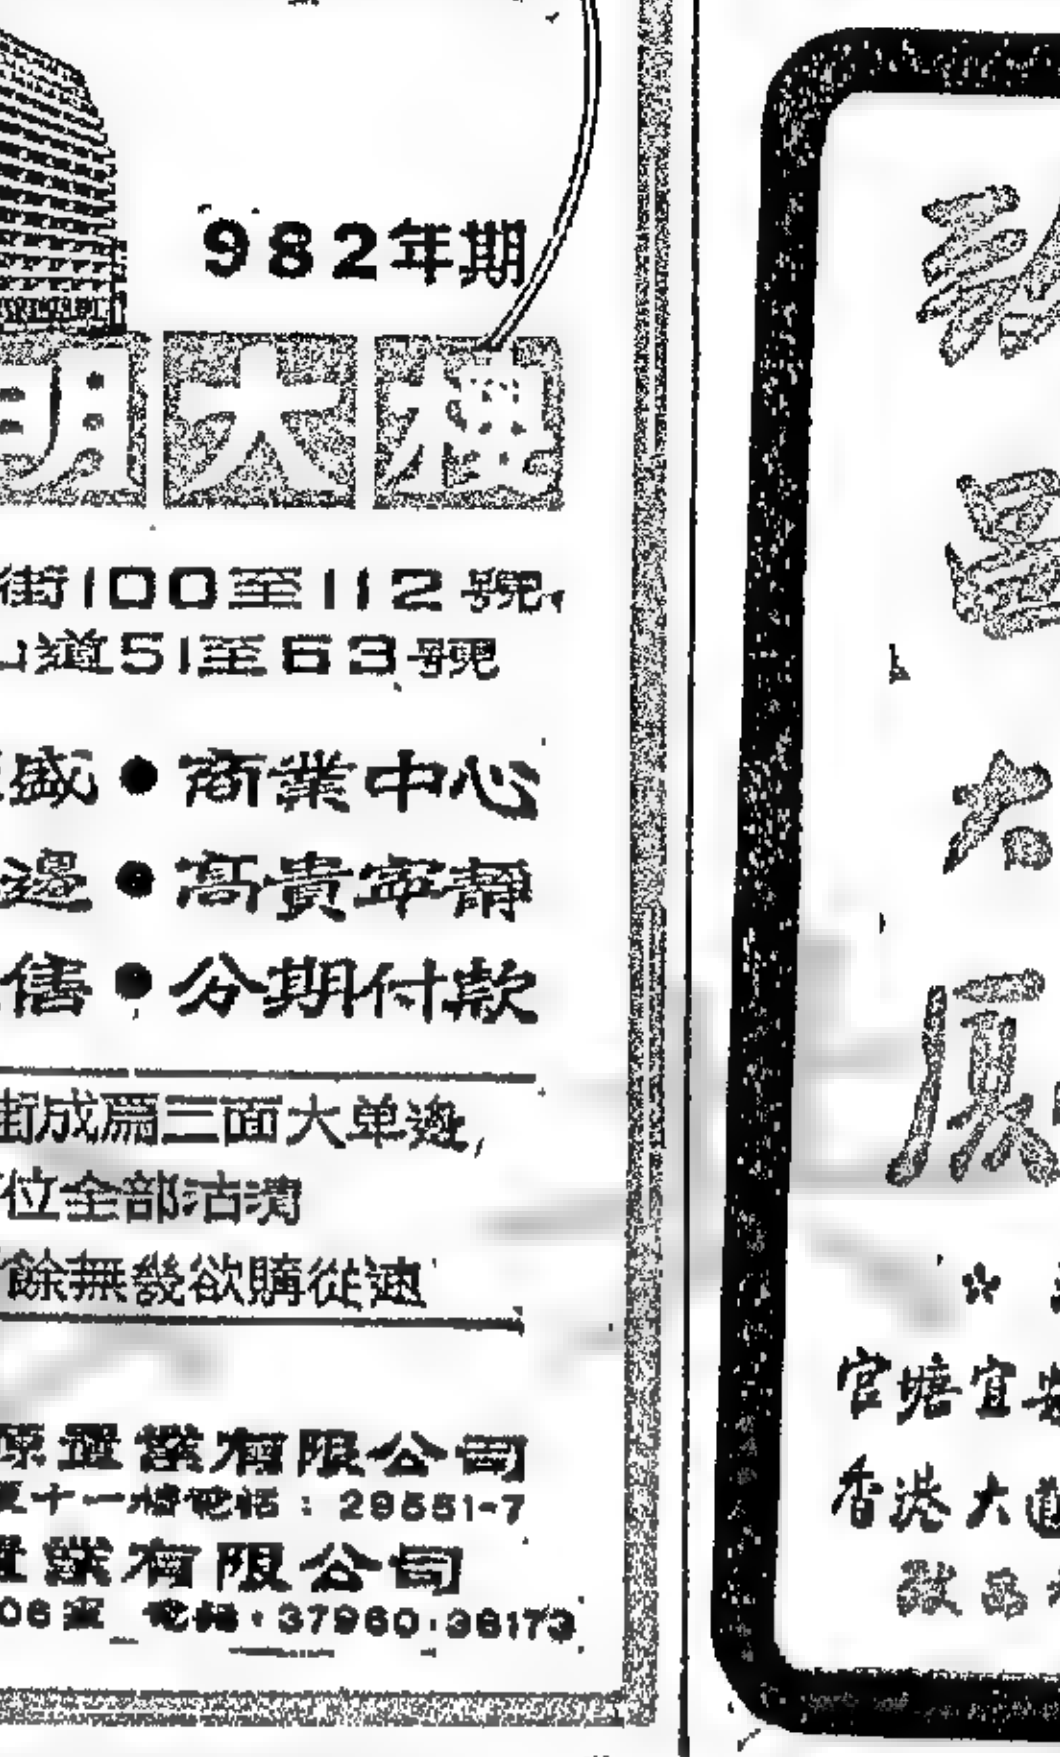 982年期
明大樓
街100至112號,
山道51至63號
盛•商業中心
邊•高貴寧靜
售•分期付款
街成爲三面大单邊,
位全部沽清
餘無幾欲購從速
置業有限公司
十一樓電話:29551-7
置業有限公司
06室 電話·37960·36173
啟
厦
官塘宜安
香港大道